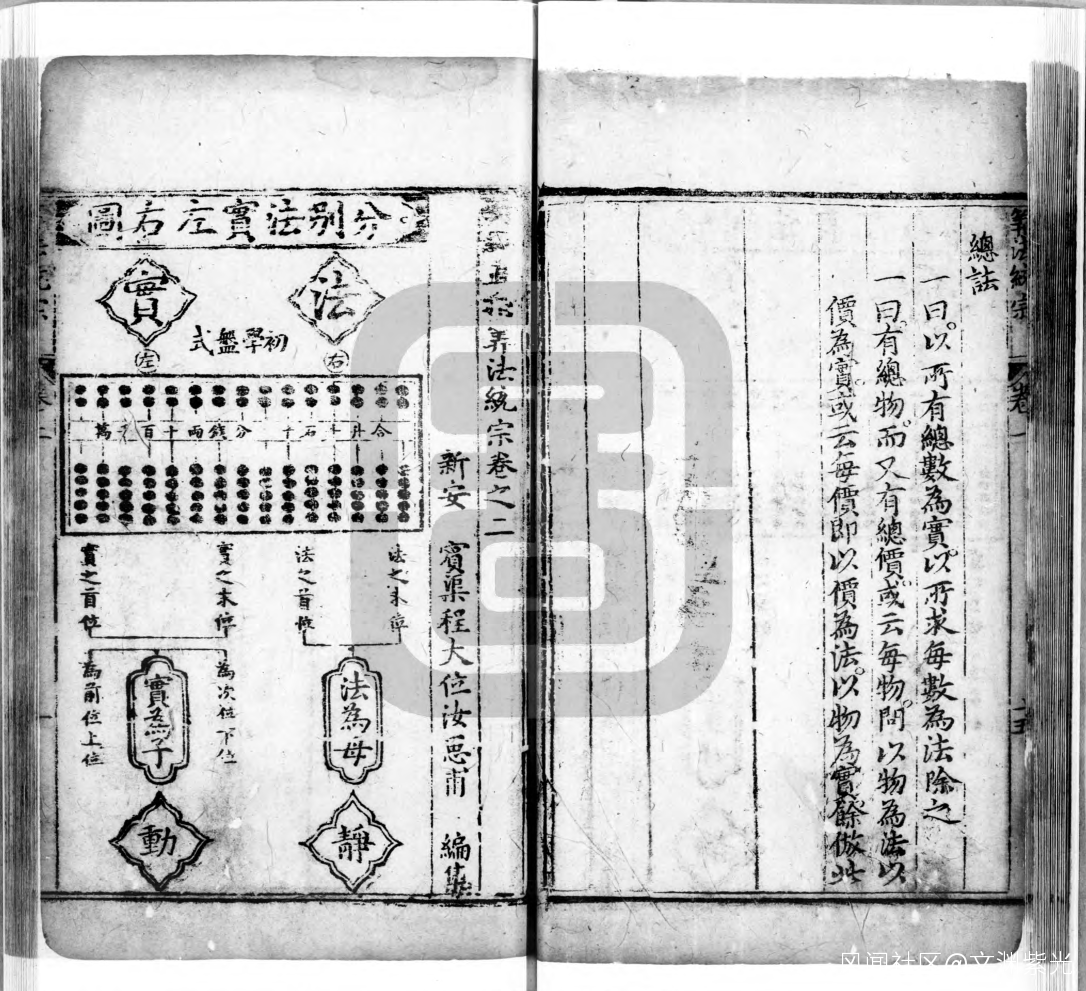 總註
一曰以所有總數為實以所求每數為法除之
一曰有總物而又有總價或云每物問以物為法以
價為實或云每價即以價為法以物為實餘倣此
算法統宗
卷一
算法統宗卷之二
新安 賓渠程大位汝思甫 編集
分別法實左右圖
法
實
初學盤式
右
左
萬千百十兩錢分 十石斗合
法之末位
法之首位
實之末位
實之首位
為次位下位
為前位上位
法為母
實為子
靜
動
风闻社区@文渊紫光